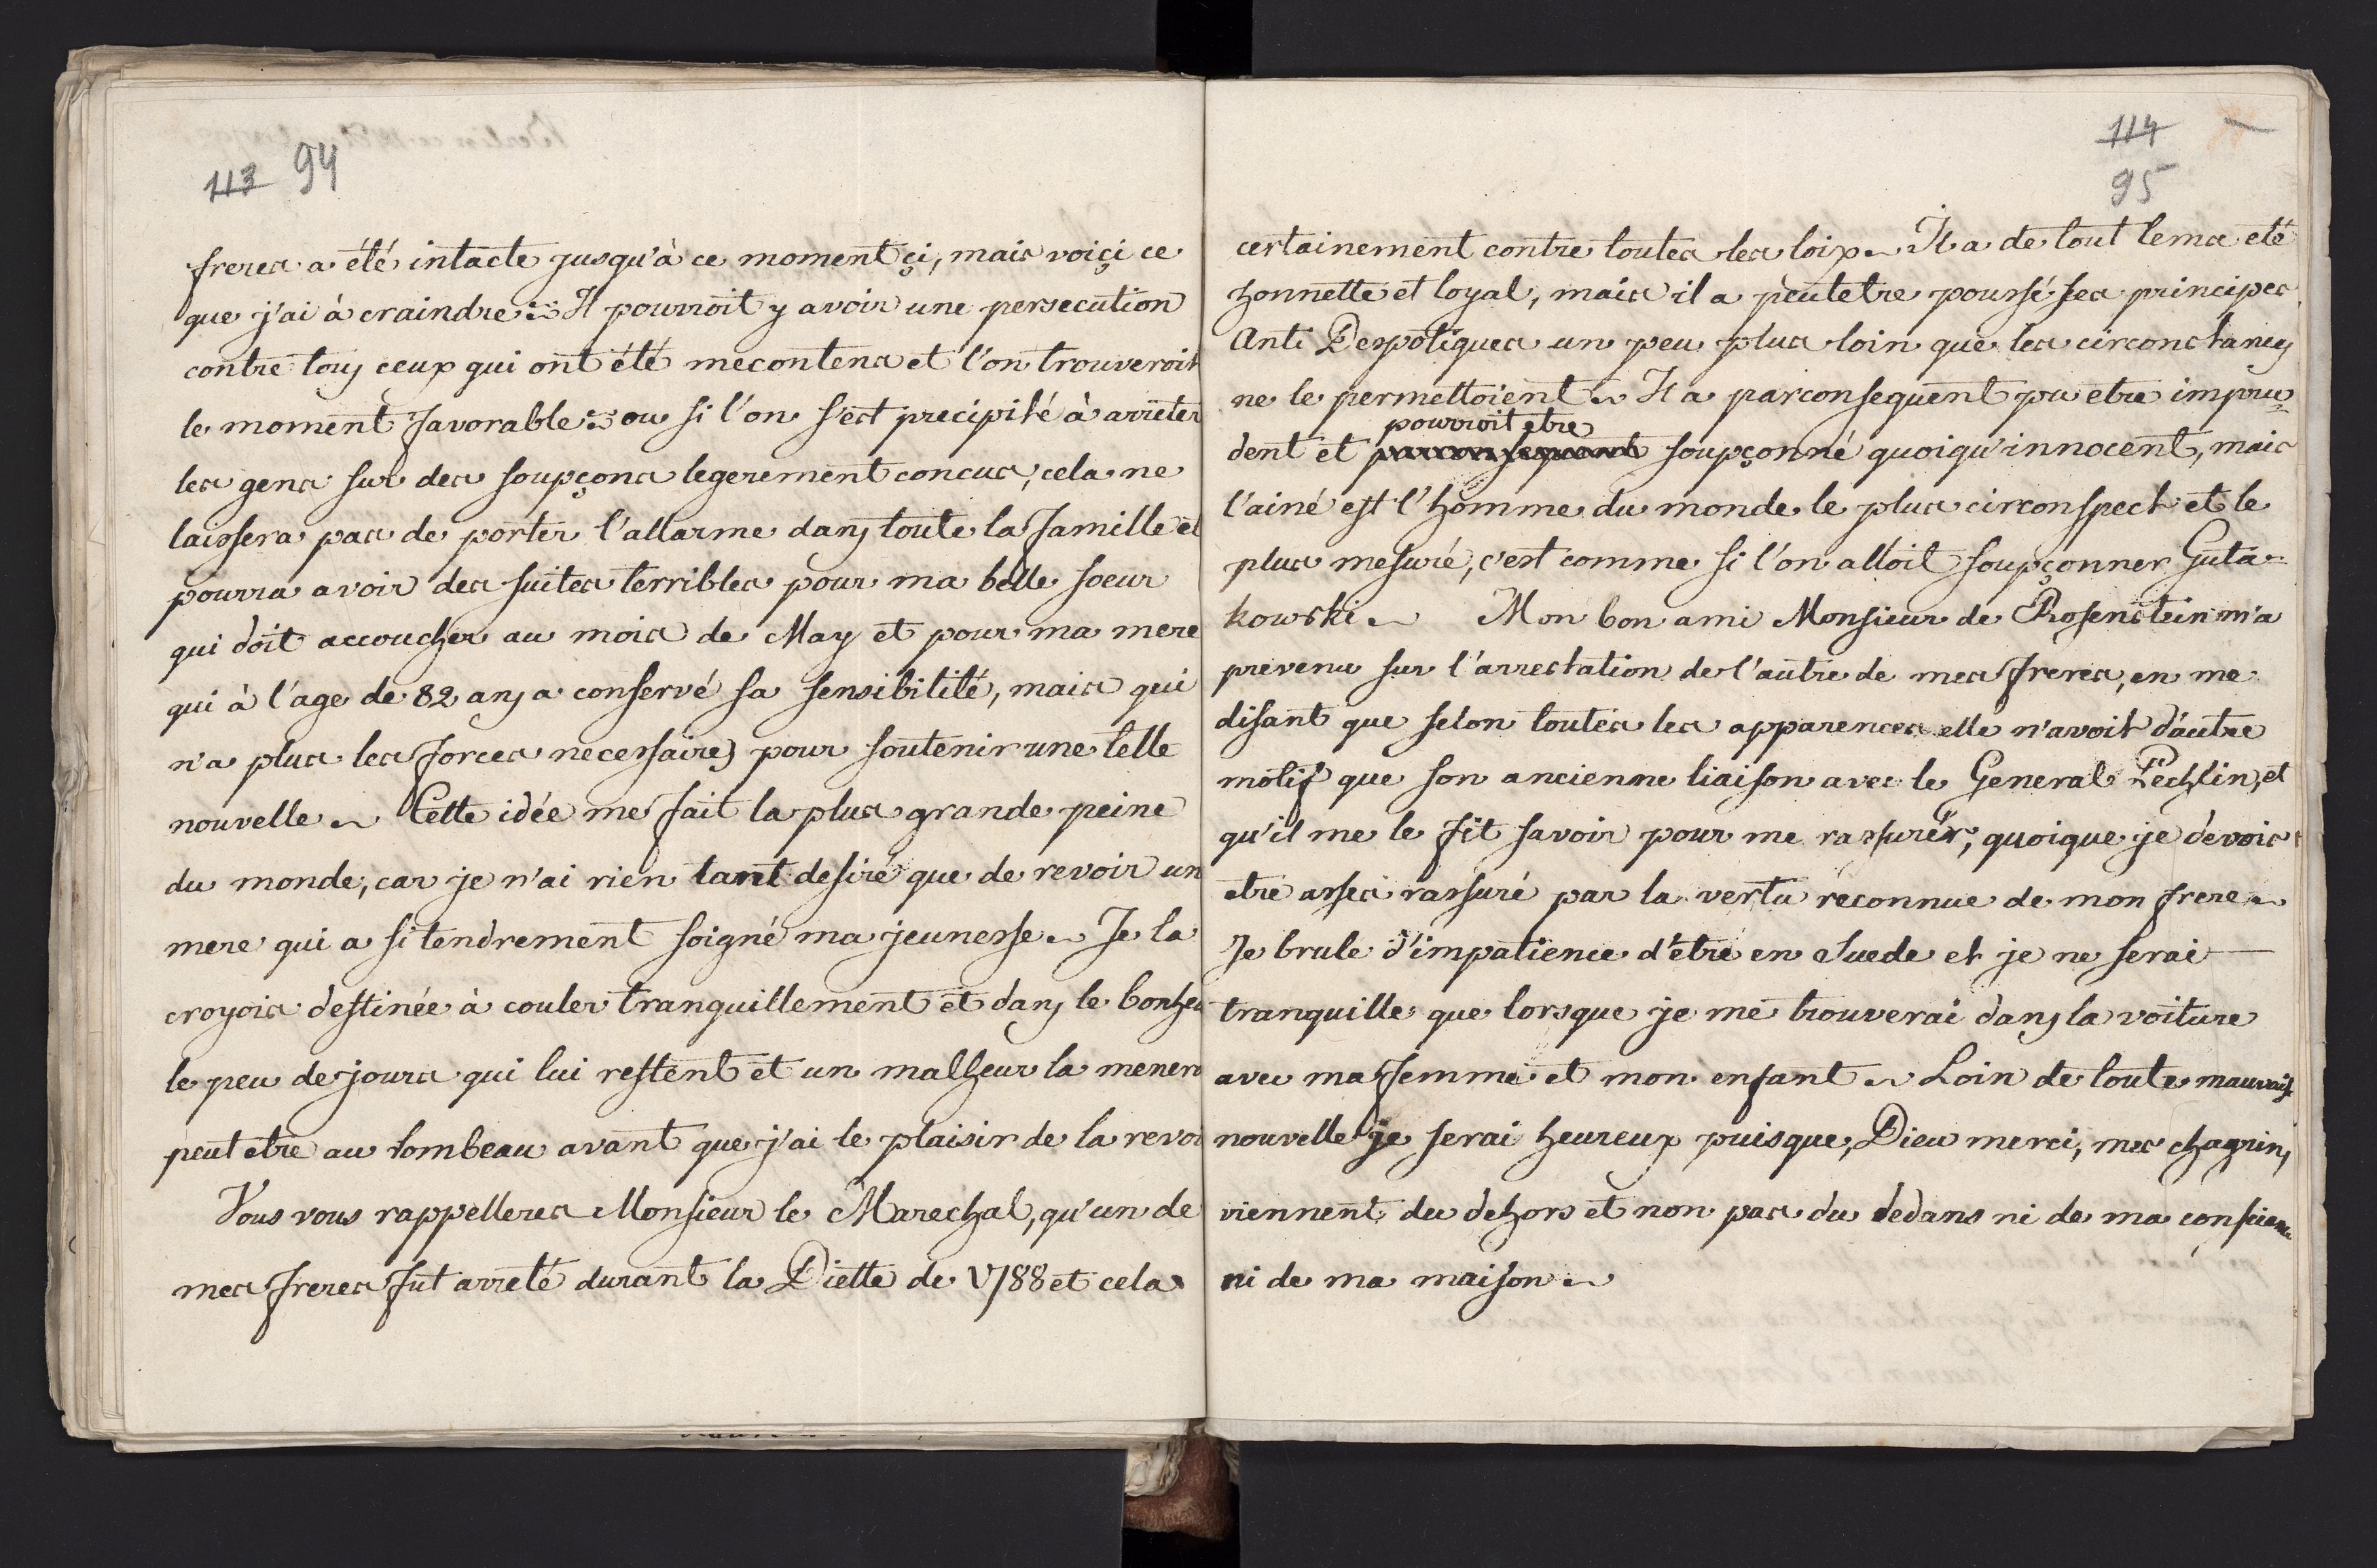 113 94
freres a été intacte jusqu'à ce moment çi, mais voiçi ce
que j'ai à craindre. Il pourroit y avoir une persecution
contre tous ceux qui ont été mecontens et l'on trouveroit
le moment favorable. ou si l'on s'est precipité à arrêter
les gens sur des soupçons legerement concus, cela ne
laissera pas de porter l'allarme dans toute la famille et
pourra avoir des suites terribles pour ma belle soeur
qui doit accoucher au mois de May et pour ma mere
qui à l'age de 82 ans a conservé sa sensibilité, mais qui
n'a plus les forces necessaires pour soutenir une telle
nouvelle. Cette idée me fait la plus grande peine
du monde, car je n'ai rien tant desiré que de revoir un
mere qui a si tendrement soigné ma jeunesse. Je la
croyois destinée à couler tranquillement et dans le bonheu
le peu de jours qui lui restent et un malheur la menera
peut être au tombeau avant que j'ai le plaisir de la revoi
Vous vous rappelleres Monsieur le Marechal, qu'un de
mes freres fut arreté durant la Diette de 1788 et cela
114
95
certainement contre toutes les loix. Il a de tout tems eté
honnette et loyal, mais il a peutetre poussé ses principes
Anti Despotiques un peu plus loin que les circonstances
ne le permettoient. Il a parconsequent pu etre impru-
pourroit etre
dent et parconsequent soupçonné quoiqu'innocent, mais
l'ainé est l'homme du monde le plus circonspect et le
plus mesuré, c'est comme si l'on alloit soupçonner Guta-
kowski. Mon bon ami Monsieur de Rosenstein m'a
prevenu sur l'arrestation de l'autre de mes freres, en me
disant que selon toutes les apparences elle n'avoit d'autre
motif que son ancienne liaison avec le General Pechlin, et
qu'il me le fit savoir pour me rassurer, quoique je devois
etre asses rassuré par la vertu reconnue de mon frere.
Je brule d'impatience d'être en Suede et je ne serai
tranquille que lorsque je me trouverai dans la voiture
avec ma femme et mon enfant. Loin de toute mauvaise
nouvelle je serai heureux puisque, Dieu merci, mes chagrins
viennent du dehors et non pas du dedans ni de ma conscience
ni de ma maison.